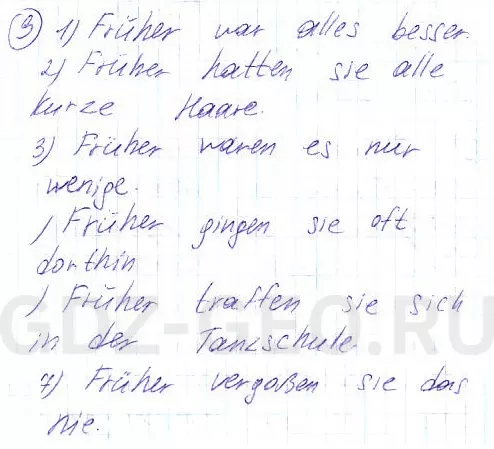 3 1) Früher war alles besser.
2) Früher hatten sie alle
kurze Haare.
3) Früher waren es nur
wenige.
) Früher gingen sie oft
dorthin
) Früher traffen sie sich
in der Tanzschule
7) Früher vergaßen sie das
nie.
GDZ-GEO.RU